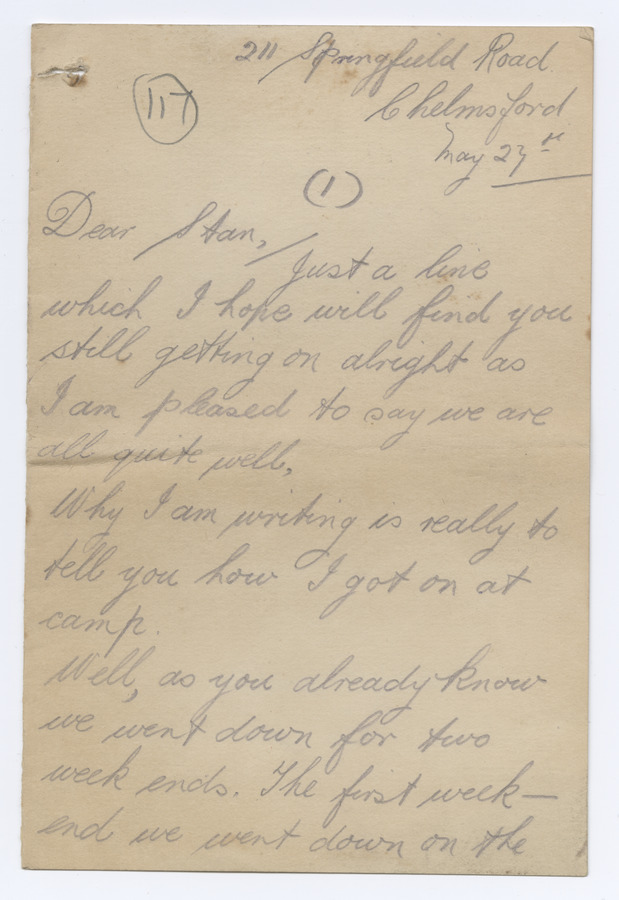 211 Springfield Road
Chelmsford
117
May 27th
(1)
Dear Stan,
Just a line
which I hope will find you
still getting on alright as
I am pleased to say we are
all quite well,
Why I am writing is really to
tell you how I got on at
camp.
Well, as you already know
we went down for two
week ends. The first week-
end we went down on the